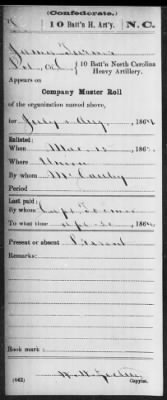 (Confederate.)
10 Batt'n H. Art'y. N. C.
James
Pvt, Co.
10 Batt'n North Carolina
Heavy Artillery.
Appears on
Company Muster Roll
of the organization named above,
for July & Aug, 1864
Enlisted:
When Mar. 186
Where Union
By whom McCauley
Period
Last paid:
By whom Capt.
To what time Apr. 30, 1864
Present or absent Present
Remarks:
Book mark:
(642) Copyist.